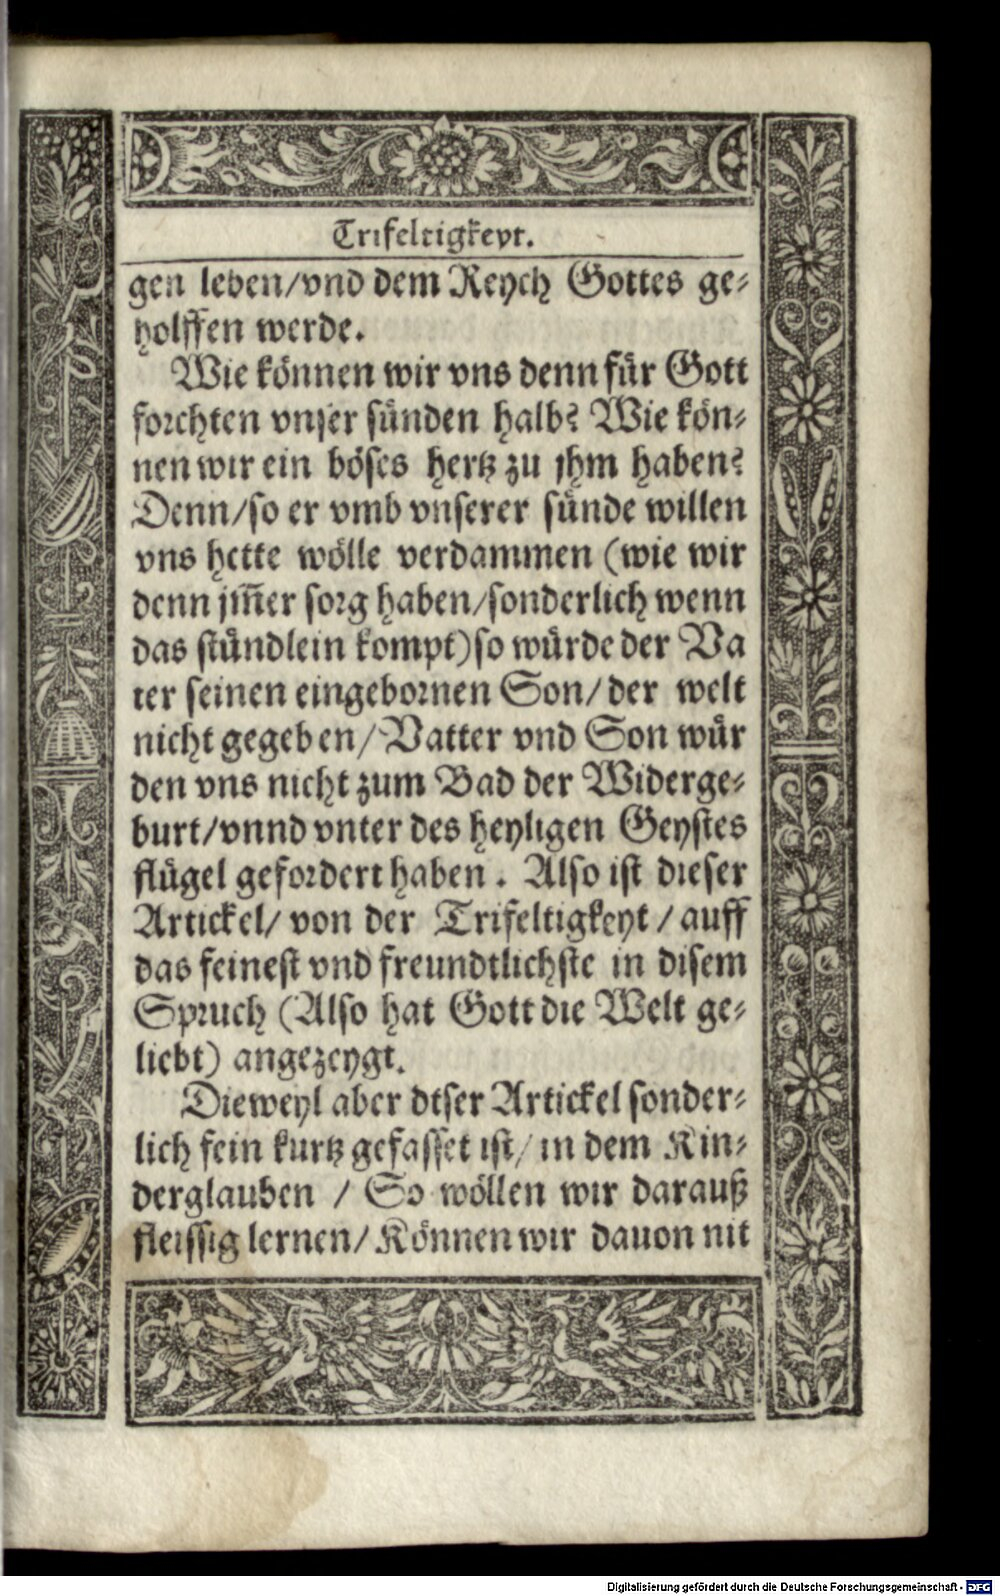 Trifeltigkeyt.
gen leben/vnd dem Reych Gottes ge-
holffen werde.
Wie können wir vns denn für Gott
forchten vnser sünden halb? Wie kön-
nen wir ein böses hertz zu jhm haben?
Denn/so er vmb vnserer sünde willen
vns hette wölle verdammen (wie wir
denn jm̅er sorg haben/sonderlich wenn
das stündlein kompt) so würde der Va
ter seinen eingebornen Son/ der welt
nicht gegeben/ Vatter vnd Son wür
den vns nicht zum Bad der Widerge-
burt/vnnd vnter des heyligen Geystes
flügel gefordert haben. Also ist dieser
Artickel/ von der Trifeltigkeyt / auff
das feinest vnd freundtlichste in disem
Spruch (Also hat Gott die Welt ge-
liebt) angezeygt.
Dieweyl aber diser Artickel sonder-
lich fein kurtz gefasset ist/ in dem Kin-
derglauben / So wöllen wir darauß
fleissig lernen/ Können wir dauon nit
Digitalisierung gefördert durch die Deutsche Forschungsgemeinschaft - DFG